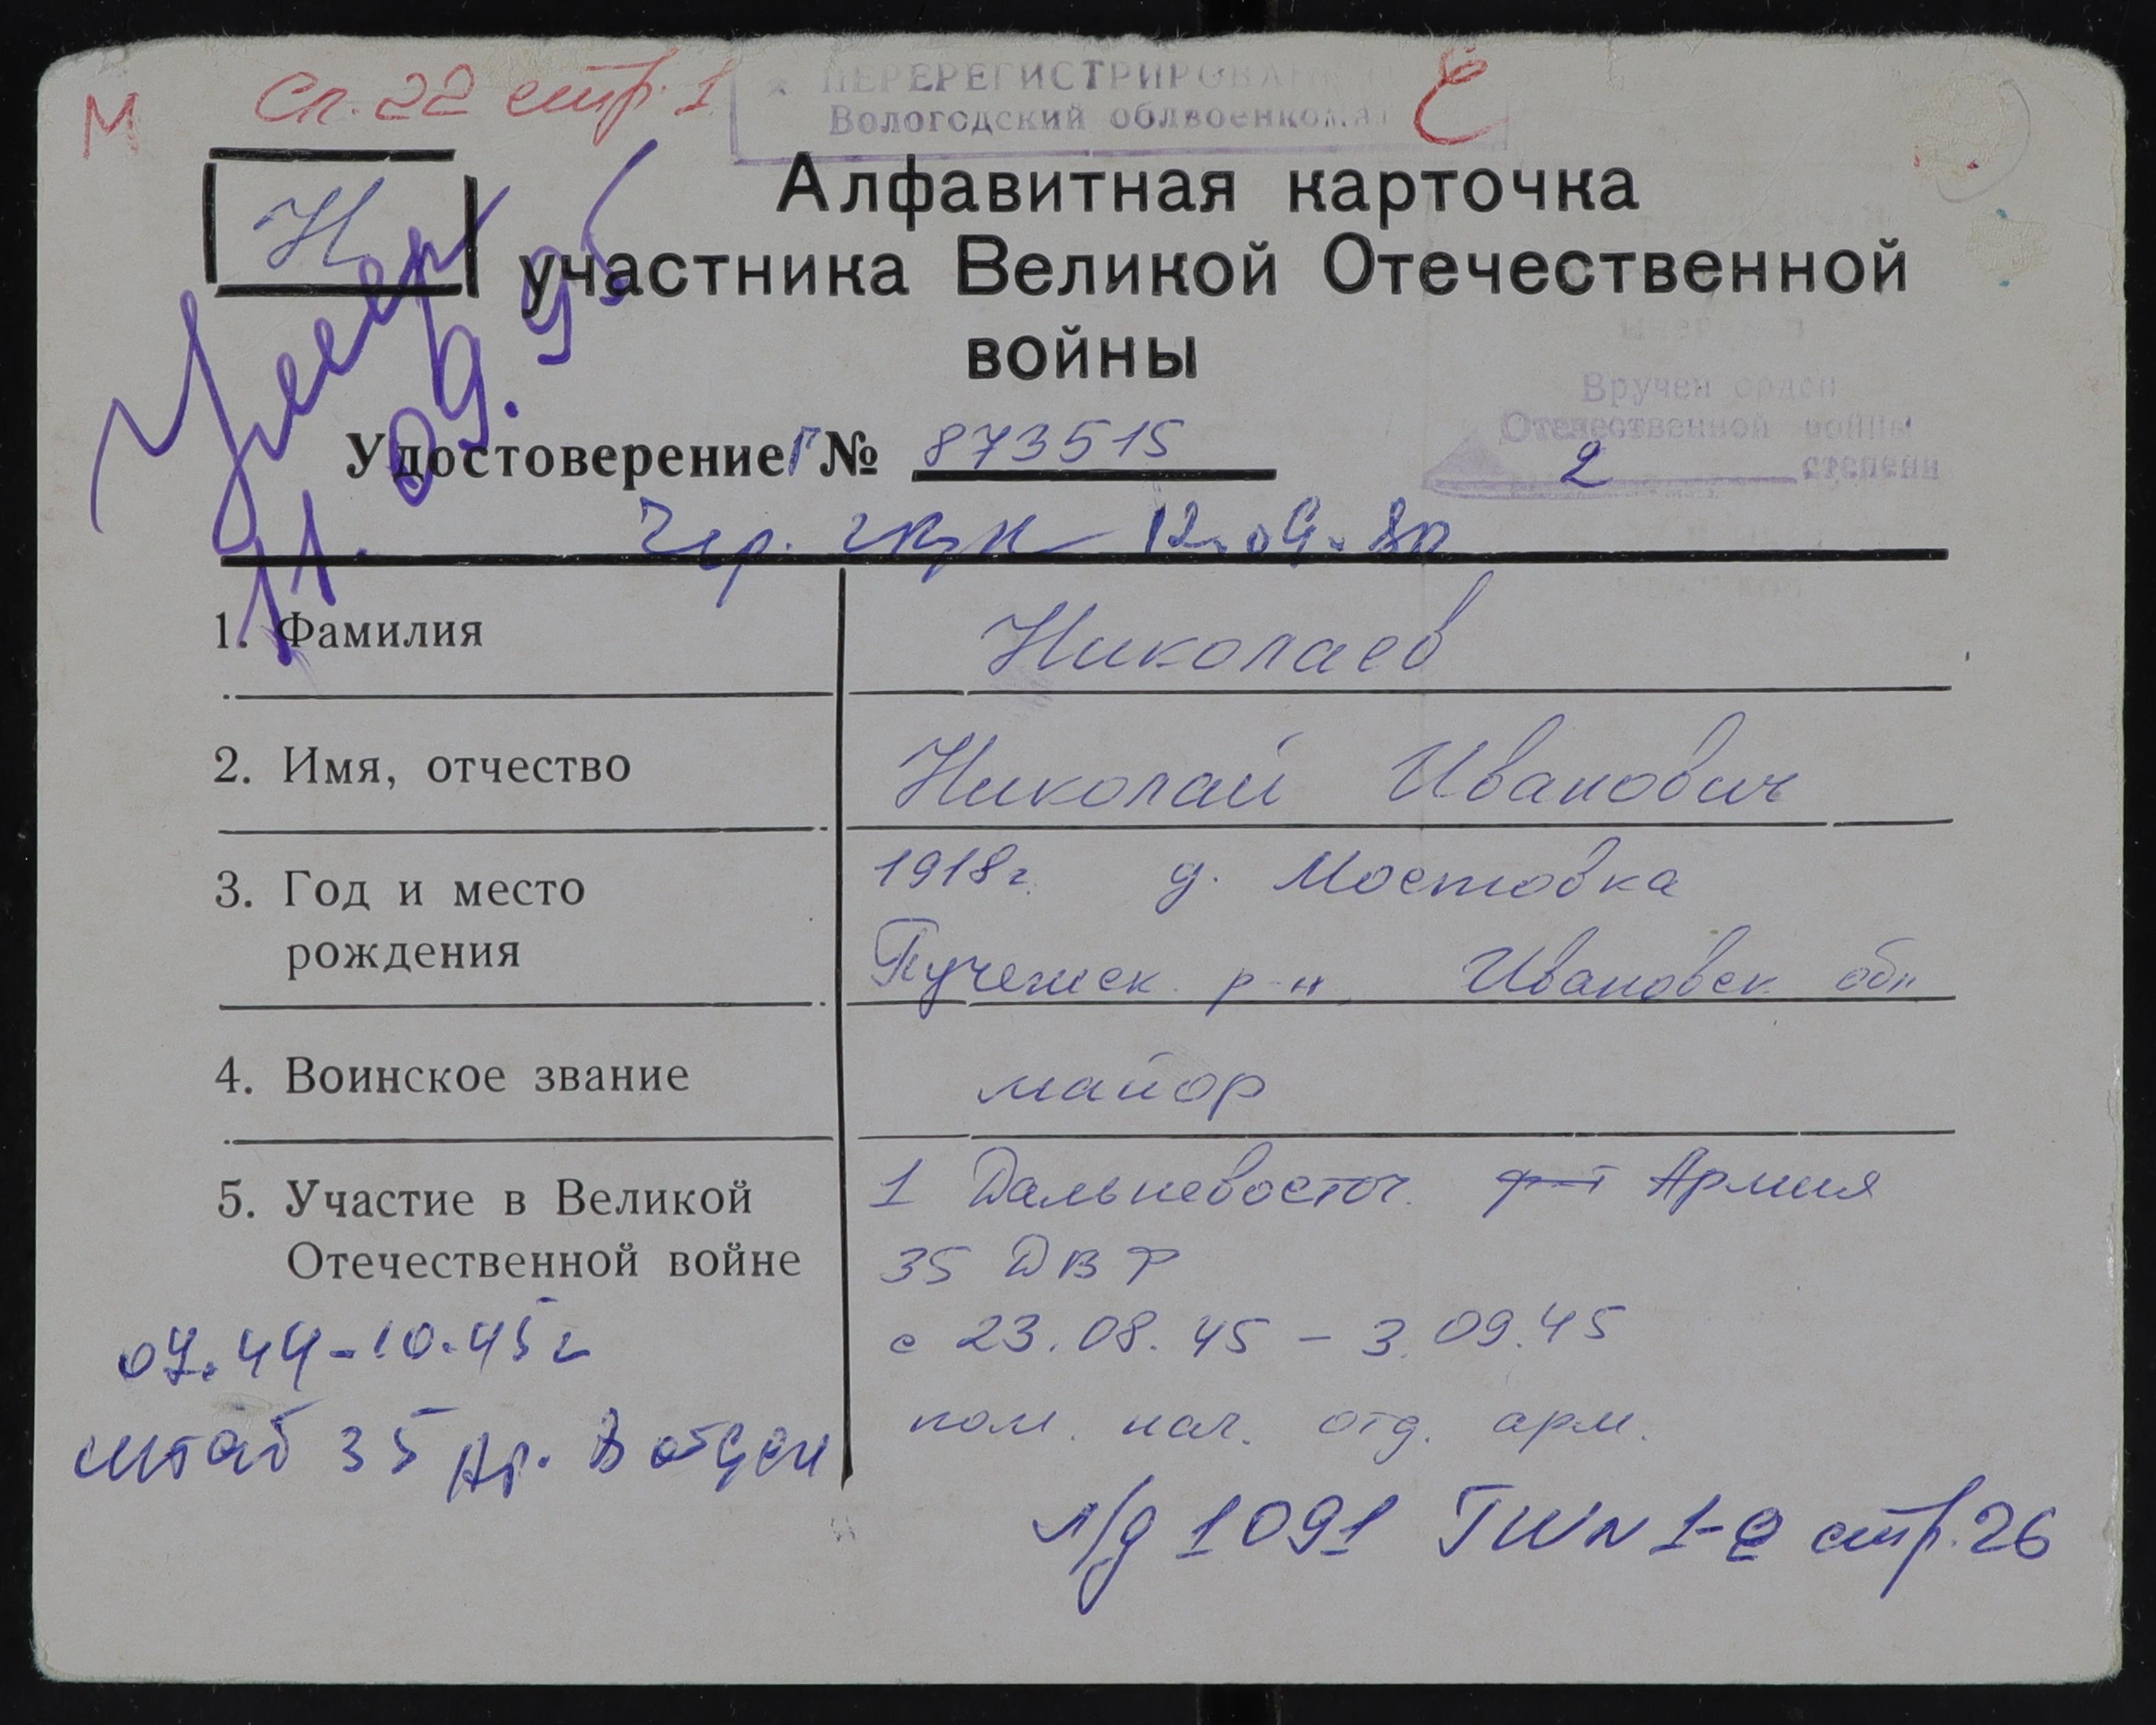 М Сп. 22 стр. 1
ПЕРЕРЕГИСТРИРОВАН
Вологодский облвоенкомат
Н
Алфавитная карточка
участника Великой Отечественной
войны
Умер
11.09.95
Вручен орден
Отечественной войны
2 степени
Удостоверение Г № 873515
12.09.80
1. Фамилия Николаев
2. Имя, отчество Николай Иванович
3. Год и место 1918 г. д. Мостовка
рождения Пучежск. р-н, Ивановск. обл
4. Воинское звание майор
5. Участие в Великой 1 Дальневосточ. ф-т Армия
Отечественной войне 35 ДВФ
07.44-10.45 г с 23.08.45 – 3.09.45
штаб 35 Ар. пом. нач. отд. арм.
л/д 1091 стр. 26